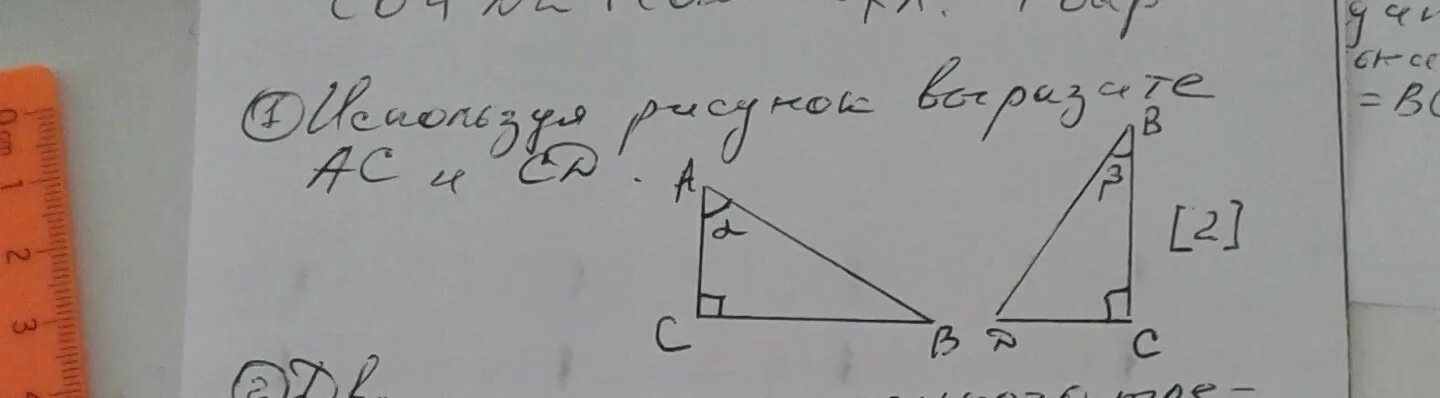 ① Используя рисунок выразите
AC и CD.
A
α
C
B
B
β
D
C
[2]
= BC
0 cm 1 2 3
② Дв